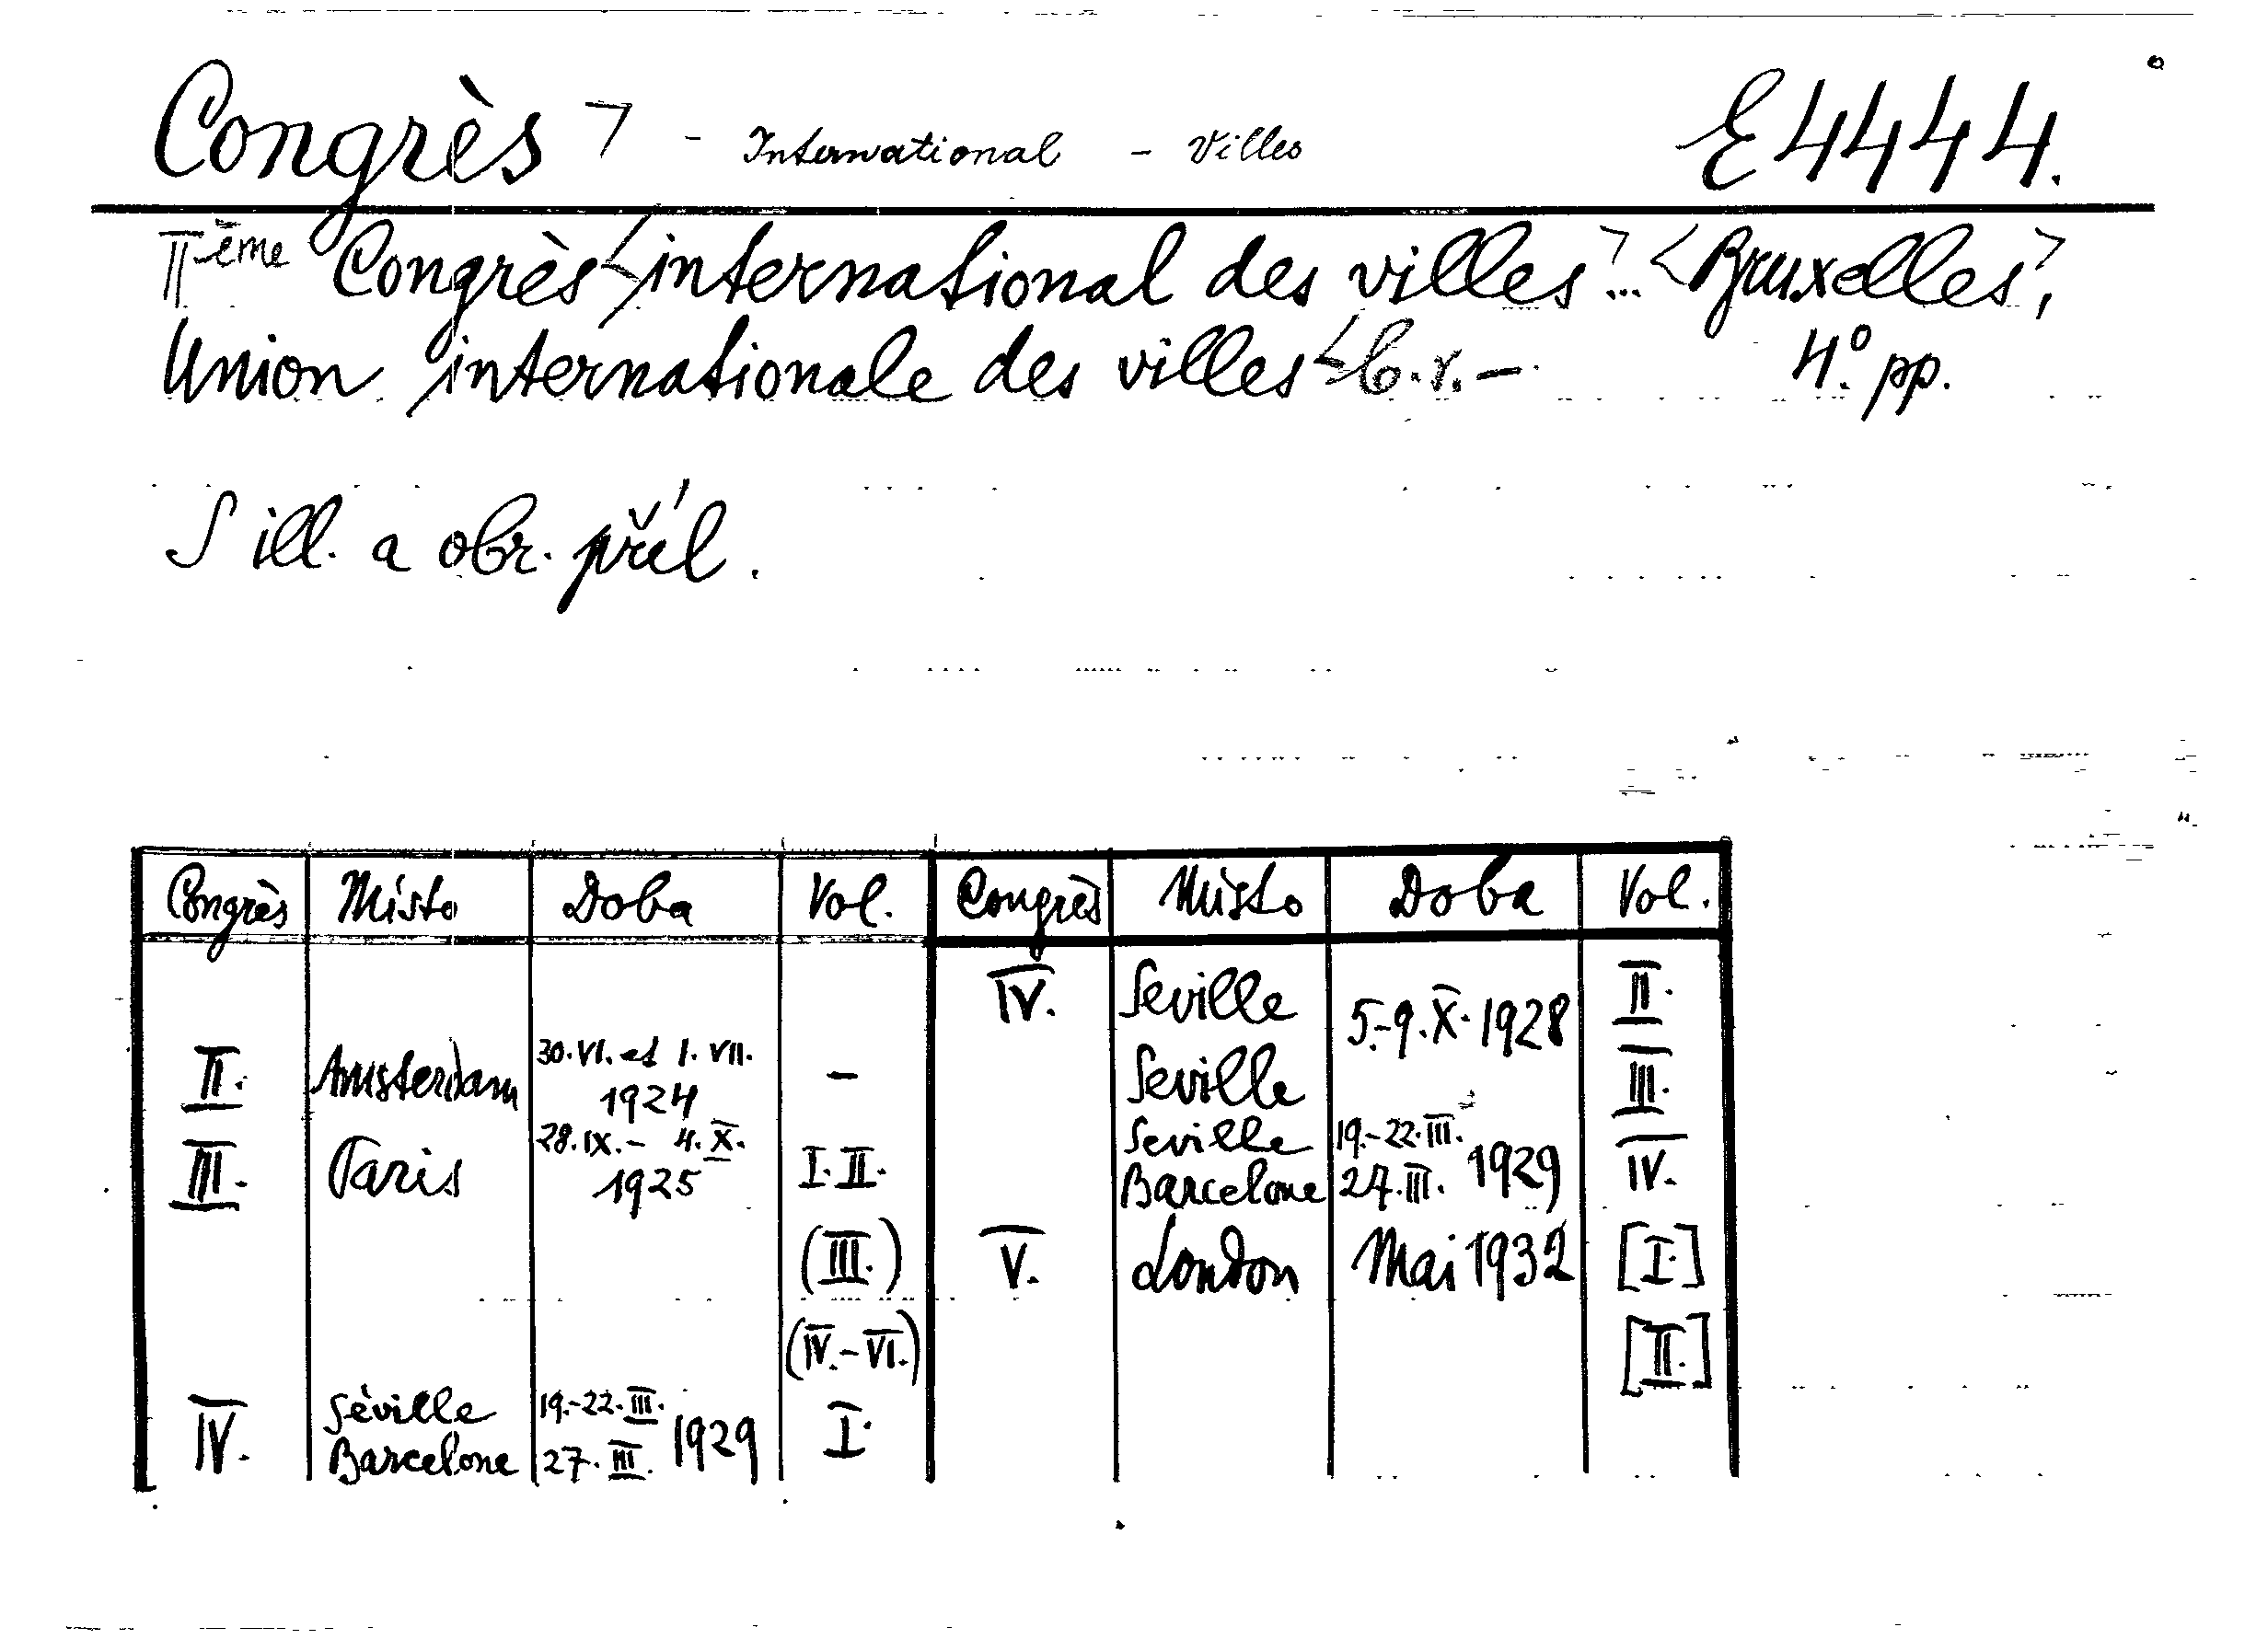 Congrès> - International - Villes E 4444.
IIème Congrès <international des villes>... <Bruxelles>,
Union internationale des villes <b.r.— 4.° pp.
S ill. a obr. příl.
Congrès Místo Doba Vol. Congrès Místo Doba Vol.
IV. Seville 5.-9.X. 1928 II.
II. Amsterdam 30.VI. et 1. VII. 1924 — Seville III.
III. Paris 28.IX.- 4.X. 1925 I. II. Seville Barcelone 19.-22.III. 27.III. 1929 IV.
(III.) V. London Mai 1932 [I.]
(IV.-VI.) [II.]
IV. Séville Barcelone 19.-22.III. 27.III. 1929 I.